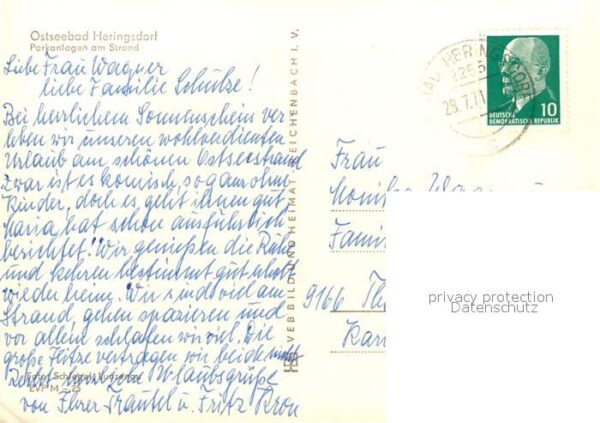 Ostseebad Heringsdorf
Parkanlagen am Strand
Liebe Frau Wagner
liebe Familie Schulze!
Bei herrlichem Sonnenschein ver
leben wir unseren wohlverdienten
Urlaub am schönen Ostseestrand
zwar ist es komisch, so ganz ohne
Kinder, doch es geht ihnen gut
Maria hat schon ausführlich
berichtet. Wir genießen die Ruhe
und kehren bestimmt gut erholt
wieder heim. Wir sind viel am
Strand, gehen spazieren und
vor allem schlafen wir viel. Die
große Hitze vertragen wir beide nicht
Recht herzliche Urlaubsgrüße
von Ihrer Trautel u. Fritz Kron
EVP M -,25
VEB BILD UND HEIMAT REICHENBACH I. V.
HERINGSDORF
2255
28.7.71
10
DEUTSCHE
DEMOKRATISCHE REPUBLIK
Frau
Monika Wagner
Famil
9166 Th
Kar
privacy protection
Datenschutz